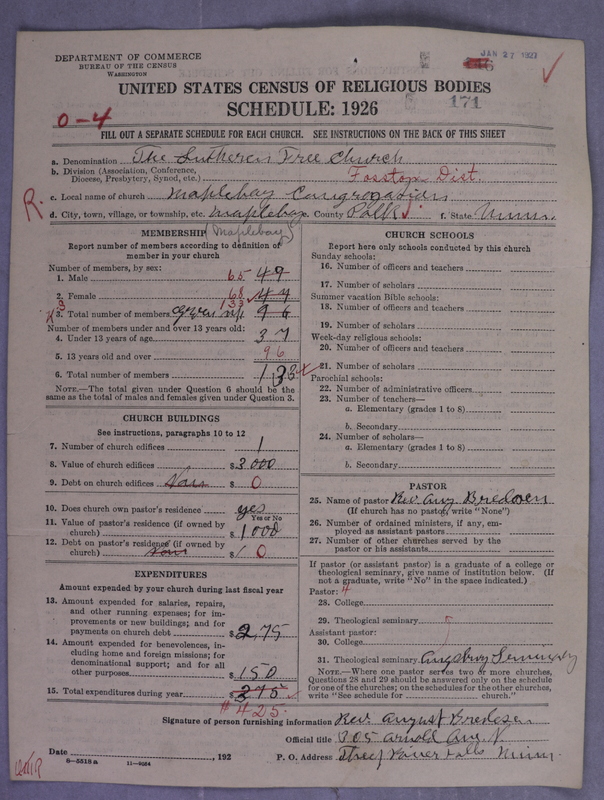 DEPARTMENT OF COMMERCE
BUREAU OF THE CENSUS
WASHINGTON
JAN 27 1927
UNITED STATES CENSUS OF RELIGIOUS BODIES
SCHEDULE: 1926
171
0-4
FILL OUT A SEPARATE SCHEDULE FOR EACH CHURCH. SEE INSTRUCTIONS ON THE BACK OF THIS SHEET
a. Denomination The Lutheran Free Church
b. Division (Association, Conference, Diocese, Presbytery, Synod, etc.) Fosston Dist.
R.
c. Local name of church Maplebay Congregation
d. City, town, village, or township, etc. Maplebay County Polk f. State Minn.
MEMBERSHIP (Maplebay)
Report number of members according to definition of member in your church
Number of members, by sex:
1. Male 65 49
2. Female 68 47
133
3. Total number of members 96
Number of members under and over 13 years old:
4. Under 13 years of age 37
5. 13 years old and over 96
6. Total number of members 133
NOTE.—The total given under Question 6 should be the same as the total of males and females given under Question 3.
CHURCH BUILDINGS
See instructions, paragraphs 10 to 12
7. Number of church edifices 1
8. Value of church edifices $3000
9. Debt on church edifices $0
10. Does church own pastor's residence yes
Yes or No
11. Value of pastor's residence (if owned by church) $1000
12. Debt on pastor's residence (if owned by church) $0
EXPENDITURES
Amount expended by your church during last fiscal year
13. Amount expended for salaries, repairs, and other running expenses; for improvements or new buildings; and for payments on church debt $275
14. Amount expended for benevolences, including home and foreign missions; for denominational support; and for all other purposes $150
15. Total expenditures during year $275
$425.
CHURCH SCHOOLS
Report here only schools conducted by this church
Sunday schools:
16. Number of officers and teachers
17. Number of scholars
Summer vacation Bible schools:
18. Number of officers and teachers
19. Number of scholars
Week-day religious schools:
20. Number of officers and teachers
21. Number of scholars
Parochial schools:
22. Number of administrative officers
23. Number of teachers—
a. Elementary (grades 1 to 8)
b. Secondary
24. Number of scholars—
a. Elementary (grades 1 to 8)
b. Secondary
PASTOR
25. Name of pastor Rev. Aug. Bredesen
(If church has no pastor, write "None")
26. Number of ordained ministers, if any, employed as assistant pastors
27. Number of other churches served by the pastor or his assistants
If pastor (or assistant pastor) is a graduate of a college or theological seminary, give name of institution below. (If not a graduate, write "No" in the space indicated.)
Pastor:
28. College
29. Theological seminary
Assistant pastor:
30. College
31. Theological seminary Augsburg Seminary
NOTE.—Where one pastor serves two or more churches, Questions 28 and 29 should be answered only on the schedule for one of the churches; on the schedules for the other churches, write "See schedule for church."
Signature of person furnishing information Rev. August Bredesen
Official title 305 Arnold Ave. N.
Date , 192
P. O. Address Thief River Falls Minn.
8—5518 a 11—9564